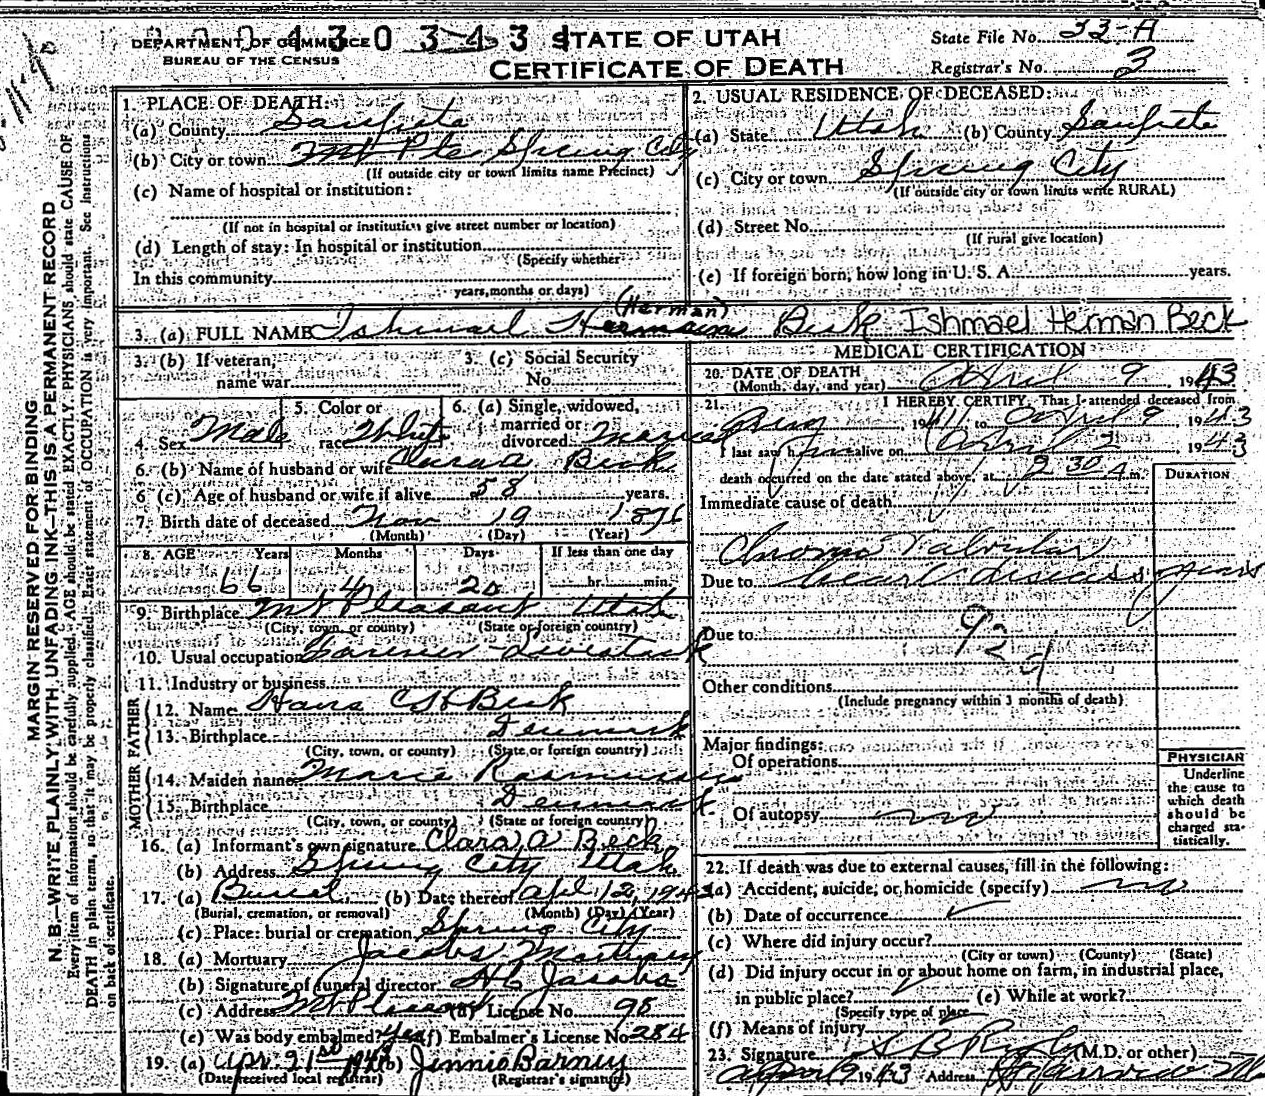 DEPARTMENT OF COMMERCE
BUREAU OF THE CENSUS
STATE OF UTAH
CERTIFICATE OF DEATH
State File No. 33-A
Registrar's No. 3
MARGIN RESERVED FOR BINDING
N. B.—WRITE PLAINLY, WITH UNFADING INK—THIS IS A PERMANENT RECORD
Every item of information should be carefully supplied. AGE should be stated EXACTLY. PHYSICIANS should state CAUSE OF
DEATH in plain terms, so that it may be properly classified. Exact statement of OCCUPATION is very important. See Instructions
on back of certificate.
1. PLACE OF DEATH:
(a) County Sanpete
(b) City or town Mt Pls Spring City
(If outside city or town limits name Precinct)
(c) Name of hospital or institution:
(If not in hospital or institution give street number or location)
(d) Length of stay: In hospital or institution
(Specify whether
In this community
years, months or days)
2. USUAL RESIDENCE OF DECEASED:
(a) State Utah (b) County Sanpete
(c) City or town Spring City
(If outside city or town limits write RURAL)
(d) Street No.
(If rural give location)
(e) If foreign born, how long in U. S. A. years.
(Herman)
3. (a) FULL NAME Ishmael Hermann Beck Ishmael Herman Beck
3. (b) If veteran, name war
3. (c) Social Security No.
4. Sex Male
5. Color or race White
6. (a) Single, widowed, married or divorced Married
6. (b) Name of husband or wife Clara A. Beck
6 (c). Age of husband or wife if alive 58 years.
7. Birth date of deceased Nov 19 1876
(Month) (Day) (Year)
8. AGE Years Months Days If less than one day
66 4 20 hr. min.
9. Birthplace Mt Pleasant Utah
(City, town, or county) (State or foreign country)
10. Usual occupation Farmer-Livestock
11. Industry or business
FATHER
12. Name Hans C H Beck
13. Birthplace Denmark
(City, town, or county) (State or foreign country)
MOTHER
14. Maiden name Marie Rasmussen
15. Birthplace Denmark
(City, town, or county) (State or foreign country)
16. (a) Informant's own signature Clara A Beck
(b) Address Spring City Utah
17. (a) Burial (b) Date thereof Apl 12, 1943
(Burial, cremation, or removal) (Month) (Day) (Year)
(c) Place: burial or cremation Spring City
18. (a) Mortuary Jacobs Mortuary
(b) Signature of funeral director H C Jacobs
(c) Address Mt Pleasant (d) License No. 98
(e) Was body embalmed? Yes (f) Embalmer's License No. 284
19. (a) Apr. 21st 1943 (b) Jennie Barney
(Date received local registrar) (Registrar's signature)
MEDICAL CERTIFICATION
20. DATE OF DEATH
(Month, day, and year) April 9, 1943
21. I HEREBY CERTIFY, That I attended deceased from
Aug 1941, to April 9 1943
I last saw him alive on April 2 1943
death occurred on the date stated above, at 2 30 A m.
DURATION
Immediate cause of death
Chronic Valvular
Due to heart disease years
Due to
92 d
Other conditions
(Include pregnancy within 3 months of death)
Major findings:
Of operations
Of autopsy no
PHYSICIAN
Underline
the cause to
which death
should be
charged sta-
tistically.
22. If death was due to external causes, fill in the following:
(a) Accident, suicide, or homicide (specify) no
(b) Date of occurrence
(c) Where did injury occur?
(City or town) (County) (State)
(d) Did injury occur in or about home on farm, in industrial place,
in public place? (e) While at work?
(Specify type of place
(f) Means of injury
23. Signature (M.D. or other)
April 9 1943 Address Fairview